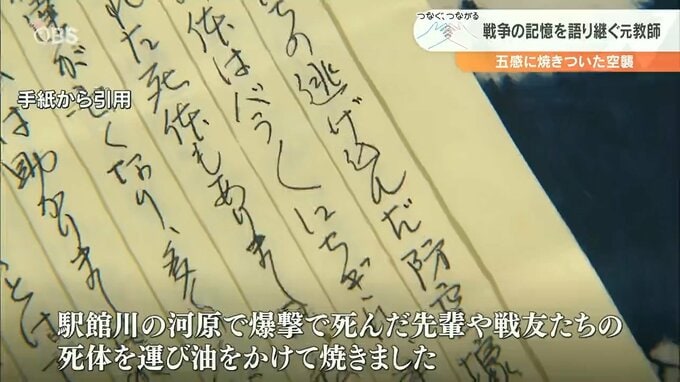 OBS
つなぐ、つながる
戦争の記憶を語り継ぐ元教師
五感に焼きついた空襲
手紙から引用
ちの逃げ込んだ防空壕
体はバラバラにちぎ
れた死体もありまし
く切り、
は助かりまし
とは
駅館川の河原で爆撃で死んだ先輩や戦友たちの
死体を運び油をかけて焼きました